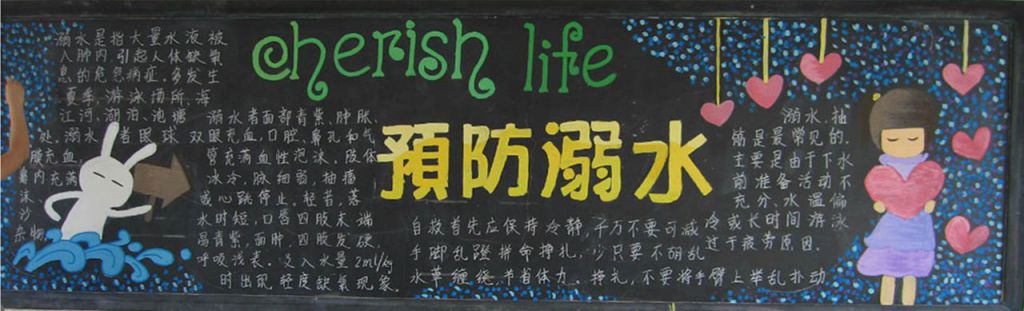 cherish life
預防溺水
溺水是指大量水液被
人肺内,引起人体缺氧
息的危急病症。多发生
夏季、游泳场所、海
江河、湖泊、池塘
处。溺水者眼球
膜充血,
鼻内充满
沫、
沙
杂物
溺水者面部青紫、肿胀、
双眼充血,口腔、鼻孔和气
管充满血性泡沫。肢体
冰冷,脉细弱,抽搐
或心跳停止。轻者,落
水时短,口唇四肢末端
青紫,面肿,四肢发硬,
呼吸浅表。吸入水量2ml/kg
时出现轻度缺氧现象。
自救首先应保持冷静,千万不要可减
手脚乱蹬拼命挣扎,少只要不胡乱
水草缠绕,节省体力。挣扎,不要将手臂上举乱扑动
溺水,抽
搐是最常见的。
主要是由于下水
前准备活动不
充分、水温偏
冷或长时间游泳
过于疲劳原因.